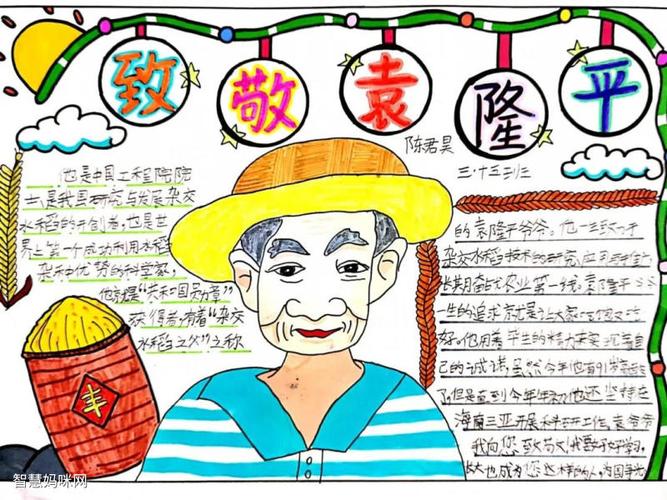 致敬袁隆平
陈君昊
三·十五班
他是中国工程院院
士,是我国研究与发展杂交
水稻的开创者,也是世
界上第一个成功利用水稻
杂种优势的科学家,
他就是“共和国勋章”
获得者,有着“杂交
水稻之父”之称
的袁隆平爷爷。他一生致力于
杂交水稻技术的研究、应用与推广
长期奋战农业第一线。袁隆平爷爷
一生的追求就是让大家
好。他用着平生的精力来实现着自
己的诺,虽然今年他有91岁高龄
了但是直到今年年初他还坚持在
海南三亚开展科研工作。袁爷爷
我向您致敬
也成为您这样的人,为国争光
丰
智慧妈咪网